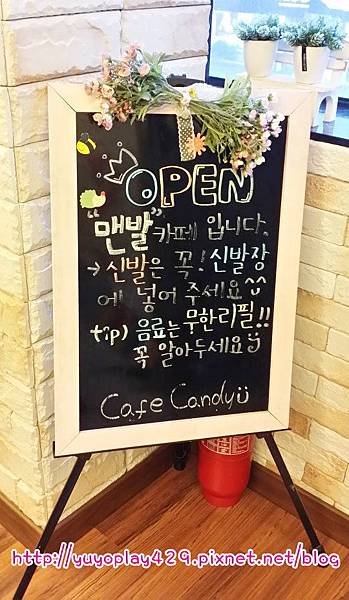 OPEN
"맨발" 카페 입니다.
→ 신발은 꼭! 신발장
에 넣어 주세요^^
tip) 음료는 무한리필!!
꼭 알아두세요
Cafe Candy
http://yuyoplay429.pixnet.net/blog